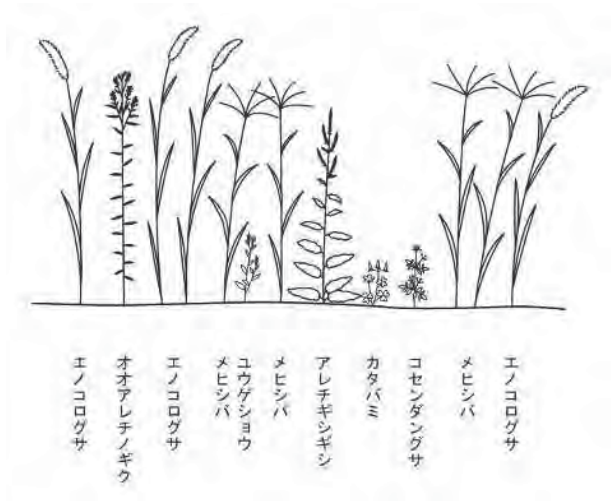 エノコログサ
オオアレチノギク
エノコログサ
メヒシバ
ユウゲショウ
メヒシバ
アレチギシギシ
カタバミ
コセンダングサ
メヒシバ
エノコログサ